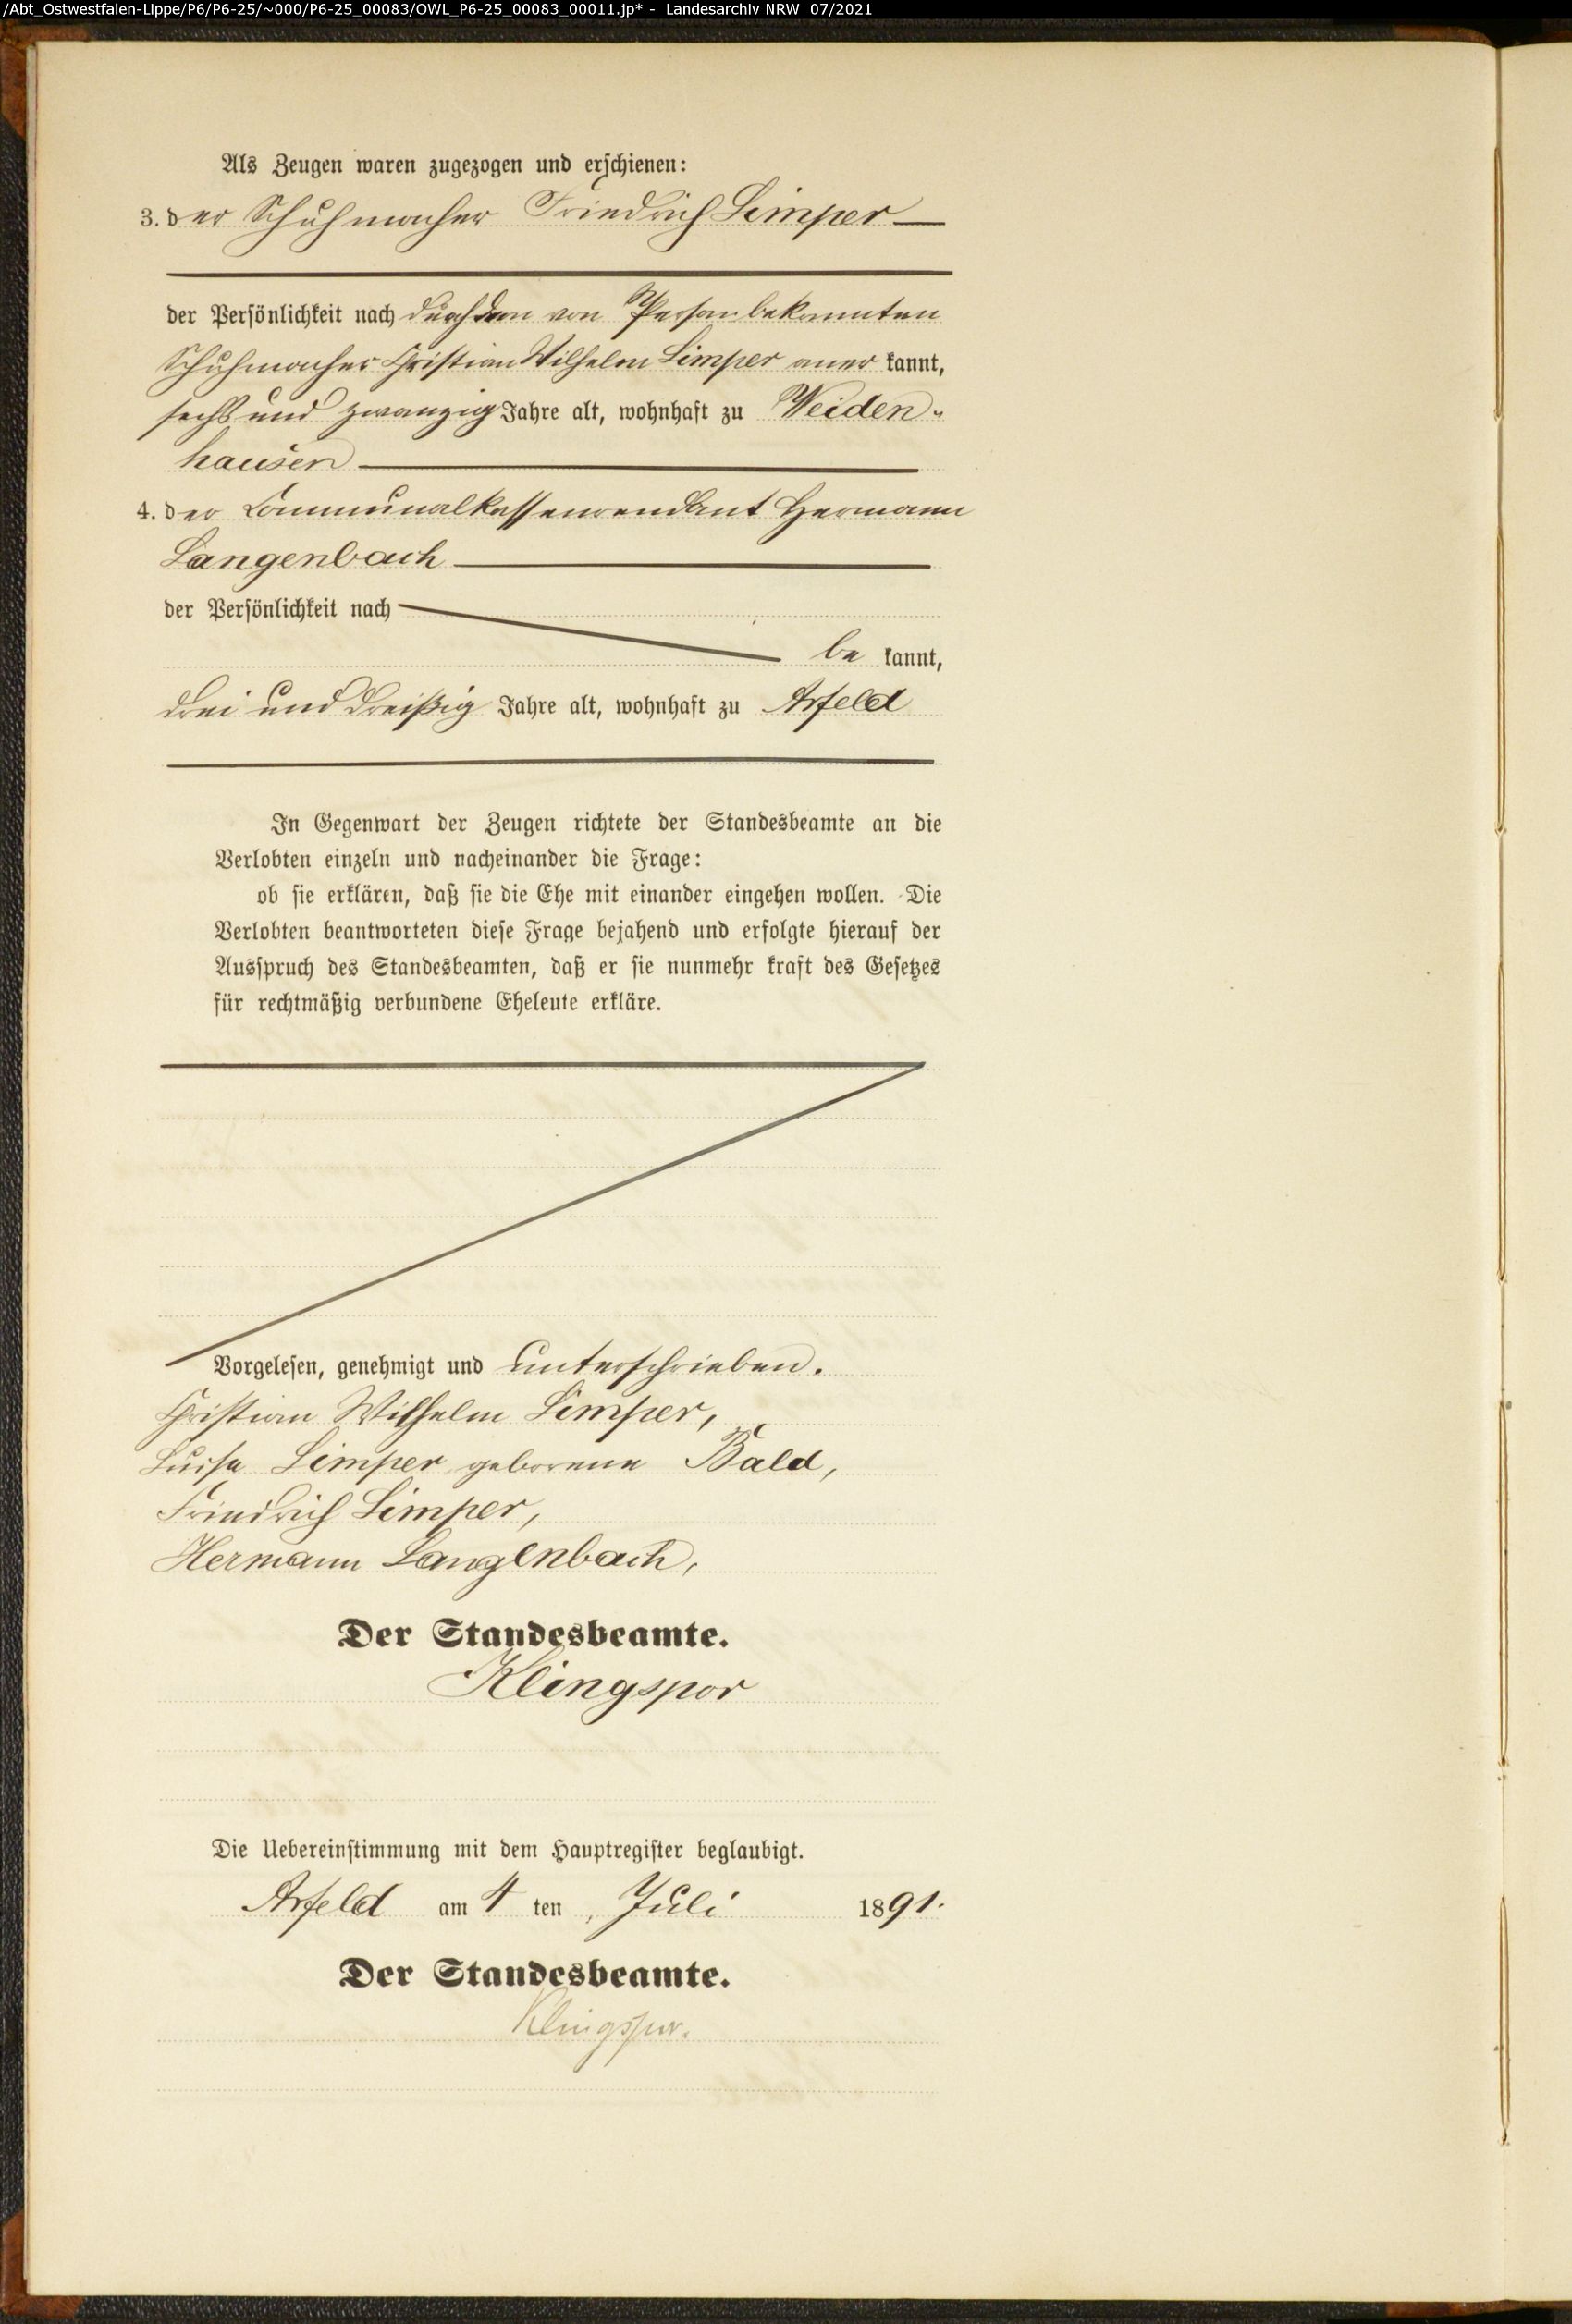 /Abt_Ostwestfalen-Lippe/P6/P6-25/~000/P6-25_00083/OWL_P6-25_00083_00011.jp* - Landesarchiv NRW 07/2021
Als Zeugen waren zugezogen und erschienen:
3. der Schuhmacher Friedrich Limper
der Persönlichkeit nach durch den von Person bekannten
Schuhmacher Christian Wilhelm Limper aner kannt,
sechs und zwanzig Jahre alt, wohnhaft zu Weiden-
hausen
4. der Communalkassenrendant Hermann
Langenbach
der Persönlichkeit nach
be kannt,
drei und dreißig Jahre alt, wohnhaft zu Arfeld
In Gegenwart der Zeugen richtete der Standesbeamte an die
Verlobten einzeln und nacheinander die Frage:
ob sie erklären, daß sie die Ehe mit einander eingehen wollen. Die
Verlobten beantworteten diese Frage bejahend und erfolgte hierauf der
Ausspruch des Standesbeamten, daß er sie nunmehr kraft des Gesetzes
für rechtmäßig verbundene Eheleute erkläre.
Vorgelesen, genehmigt und unterschrieben.
Christian Wilhelm Limper,
Luise Limper geborene Bald,
Friedrich Limper,
Hermann Langenbach,
Der Standesbeamte.
Klingspor
Die Uebereinstimmung mit dem Hauptregister beglaubigt.
Arfeld am 4 ten Juli 1891.
Der Standesbeamte.
Klingspor.